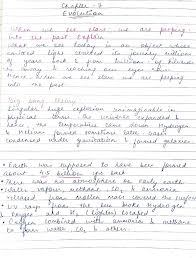 Chapter - 7
Evolution
When we see stars we are peeping
into the past. Explain
What we see today is an object whose
emitted light started its journey millions
of years back & from trillions of kilometers
away & reaching our eyes now.
Hence when we see stars we are peeping
into the past
Big bang theory
Singular huge explosion unimaginable in
physical sense the universe expanded &
hence the temperature came down. Hydrogen
& Helium formed sometime later. Gases
condensed under gravitation & formed galaxies
Earth was supposed to have been formed
about 4.5 billion yrs back
There was no atmosphere on early earth
Water vapour, methane, CO2 & ammonia
released from molten mass covered the surface
UV rays from the sun broke hydrogen
& oxygen and H2 (lighter) escaped
Oxygen combined with ammonia & methane
to form water, CO2 & others